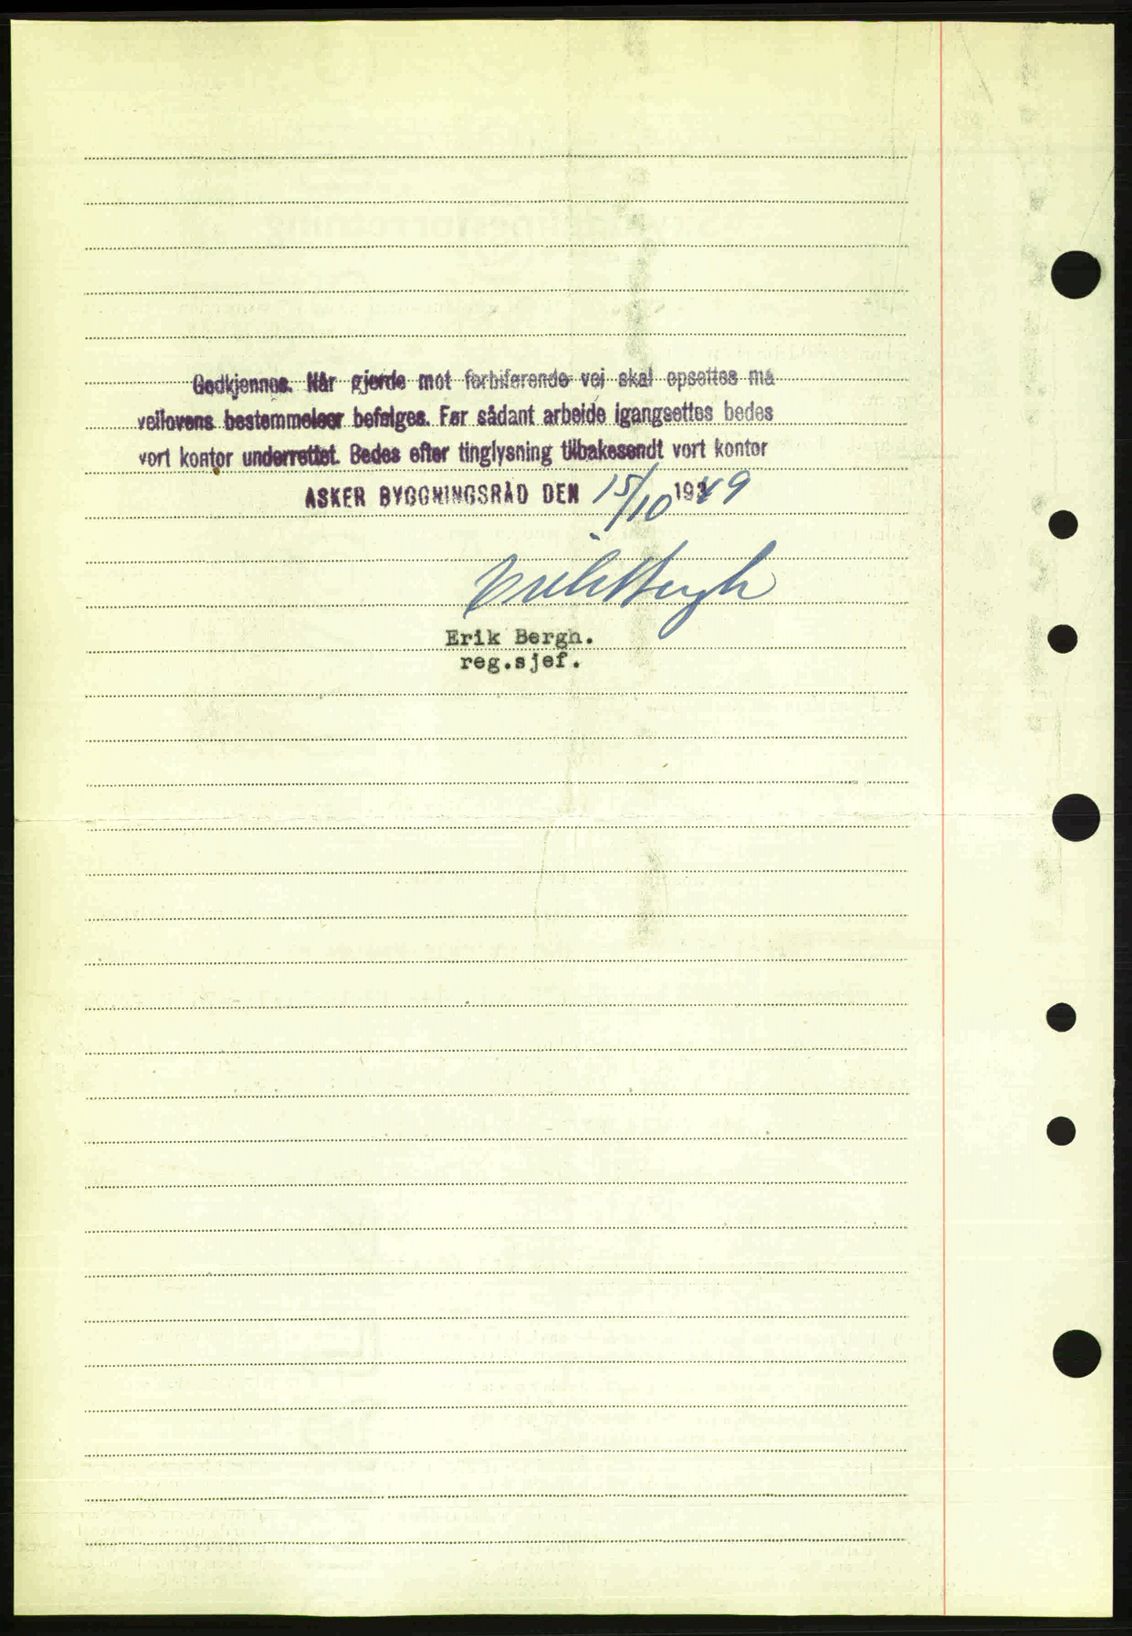 Godkjennes. Når gjerde mot forbiførende vei skal opsettes må
veilovens bestemmelser befølges. Før sådant arbeide igangsettes bedes
vort kontor underrettet. Bedes efter tinglysning tilbakesendt vort kontor
ASKER BYGGNINGSRÅD DEN 15/10 1949
Erik Bergh
Erik Bergh.
reg.sjef.